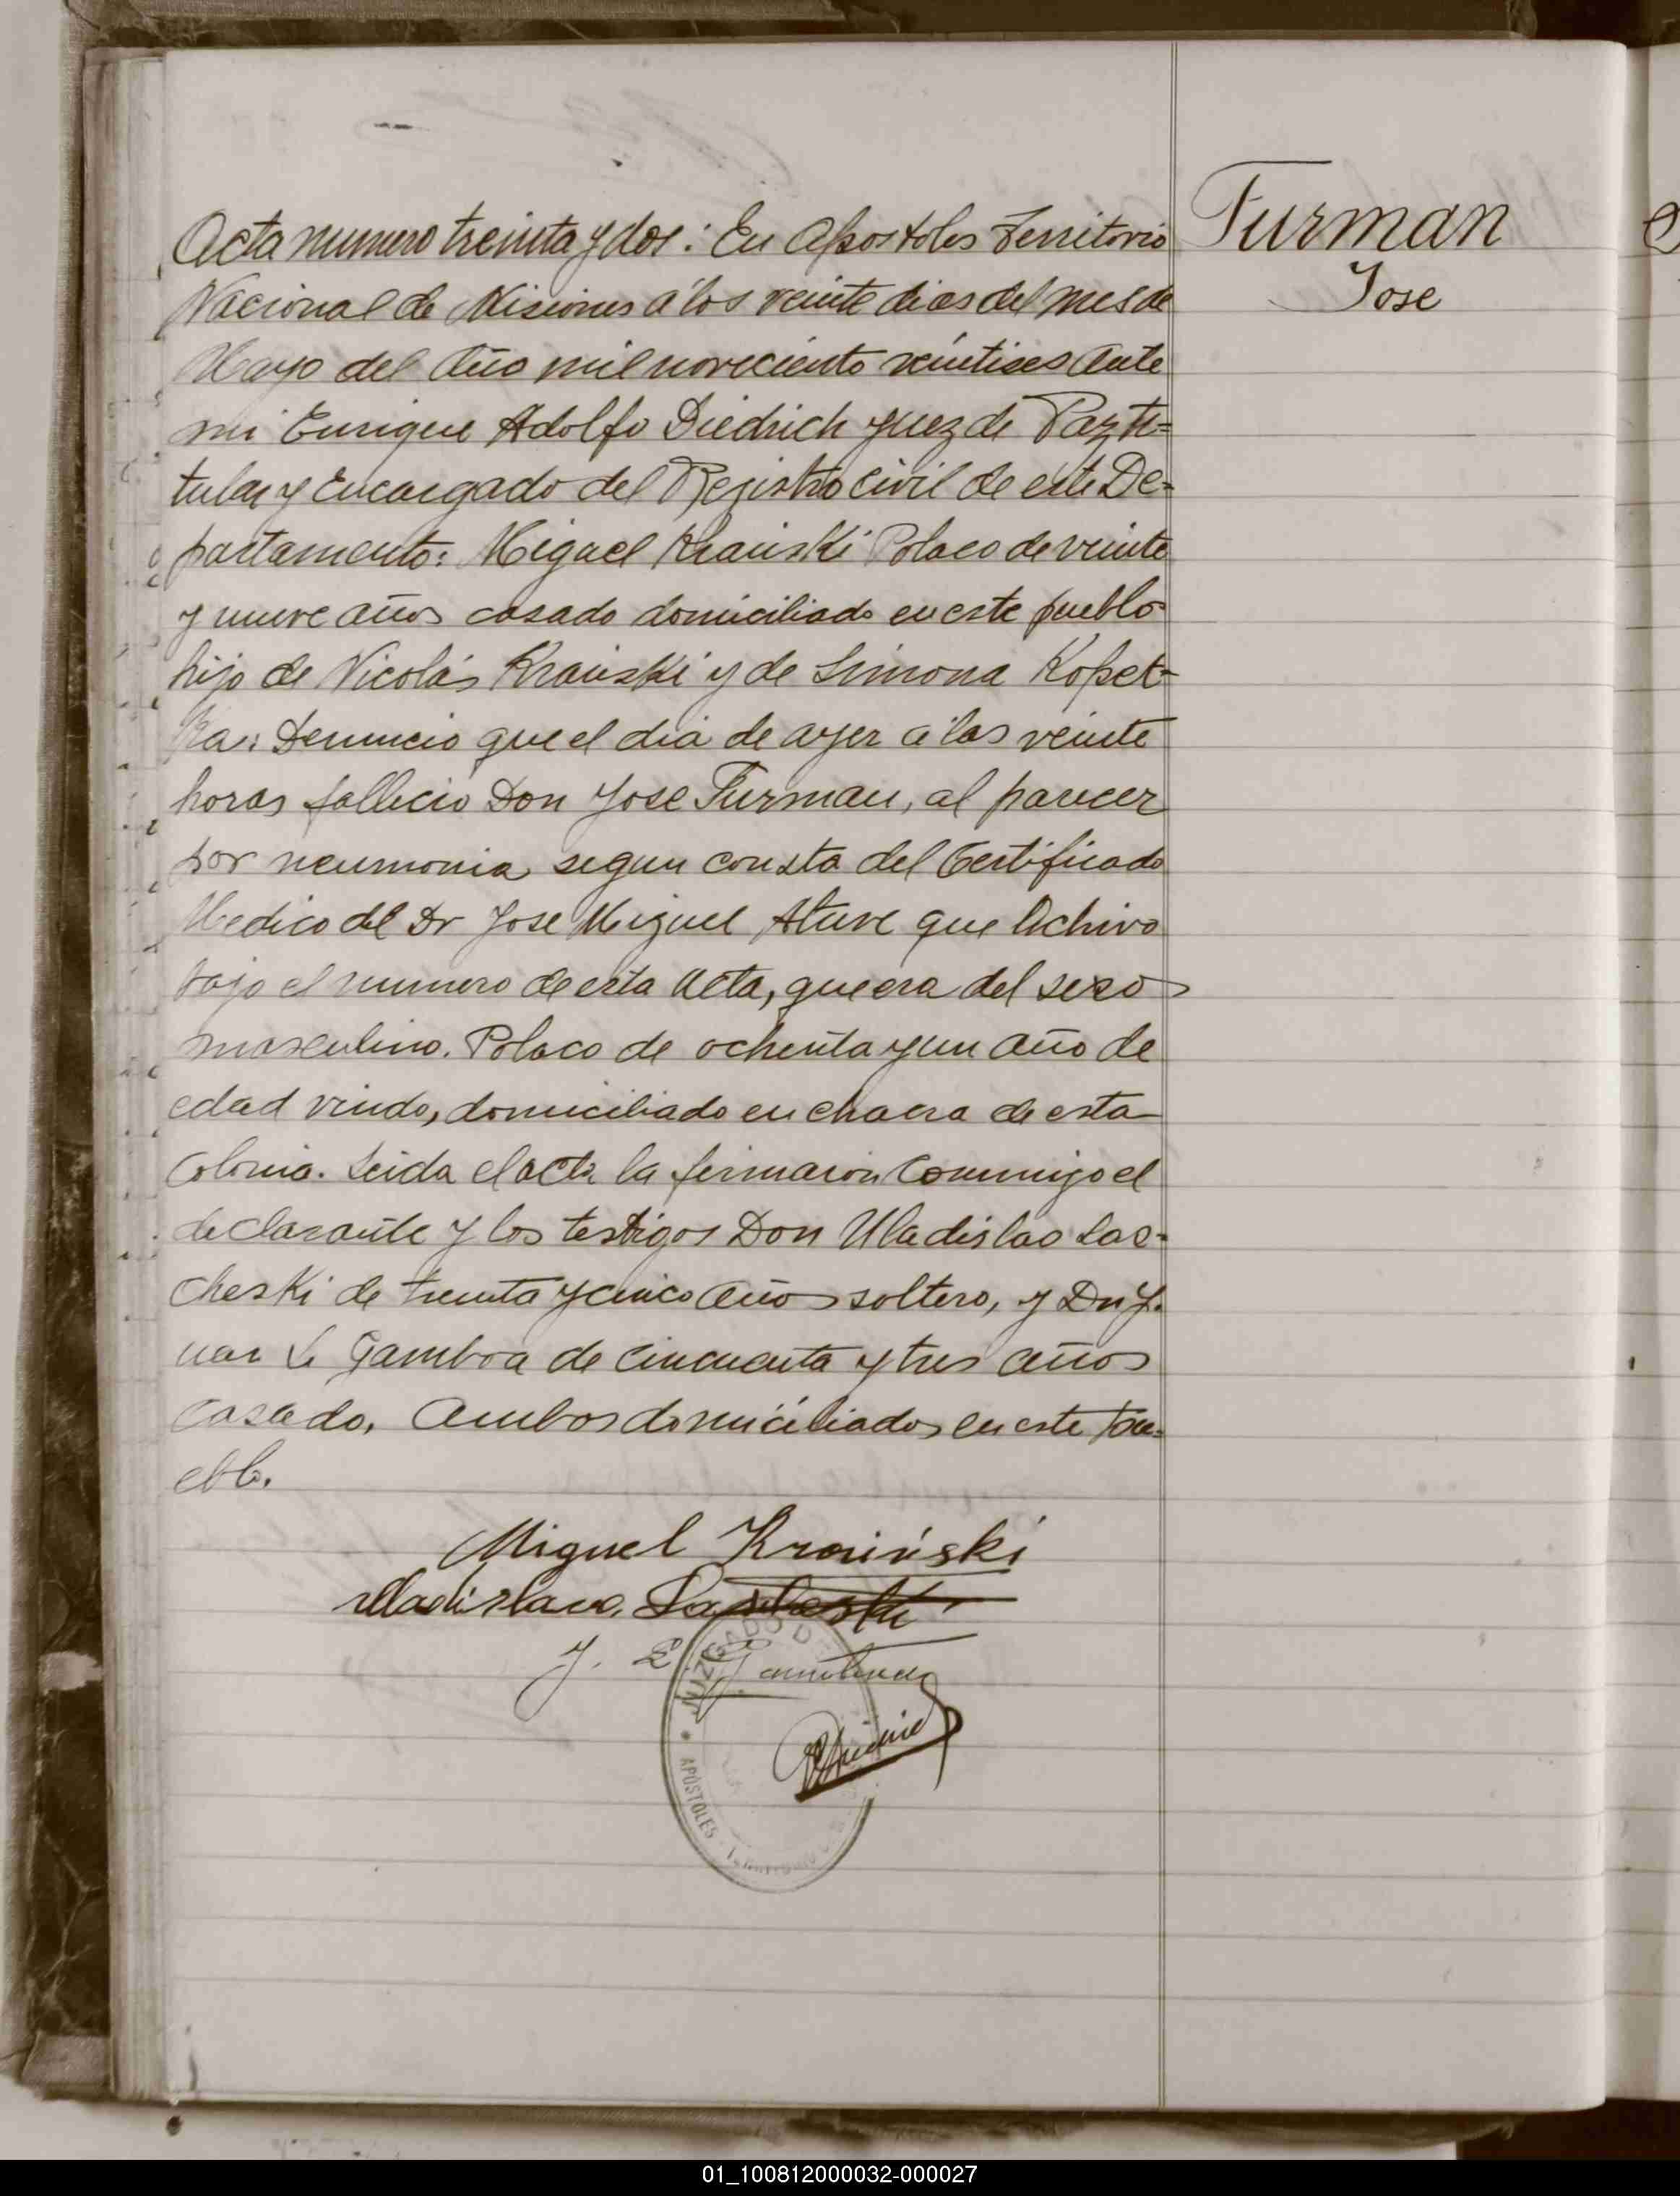 Furman
Jose
Acta numero treinta y dos: En Apostoles Territorio
Nacional de Misiones á los veinte dias del mes de
Mayo del Año mil noveciento veintises Ante
mi Enrique Adolfo Diedrich Juez de Paz ti=
tular y Encargado del Rejistro Civil de este De=
partamento: Miguel Krauski Polaco de veinte
y nueve años casado domiciliado en este pueblo
hijo de Nicolás Krauski y de Simona Kopet-
ka: Denuncio que el dia de ayer a las veinte
horas fallecio Don Jose Furman, al parecer
por neumonia segun consta del Certificado
Medico del Dr Jose Miguel que Achivo
bajo el numero de esta Acta, que era del sexo
masculino. Polaco de ochenta y un año de
edad viudo, domiciliado en chacra de esta
Colonia. Leida el acta la firmaron Conmigo el
declarante y los testigos Don Uladislao Las-
cheski de treinta y cinco años soltero, y Dn J.
uan L. Gamboa de cincuenta y tres años
casado, Ambos domiciliados en este pu=
eblo.
Miguel Krauński
J. L. Gamboa
JUZGADO DE
APÓSTOLES - TERRITORIO
01_100812000032-000027